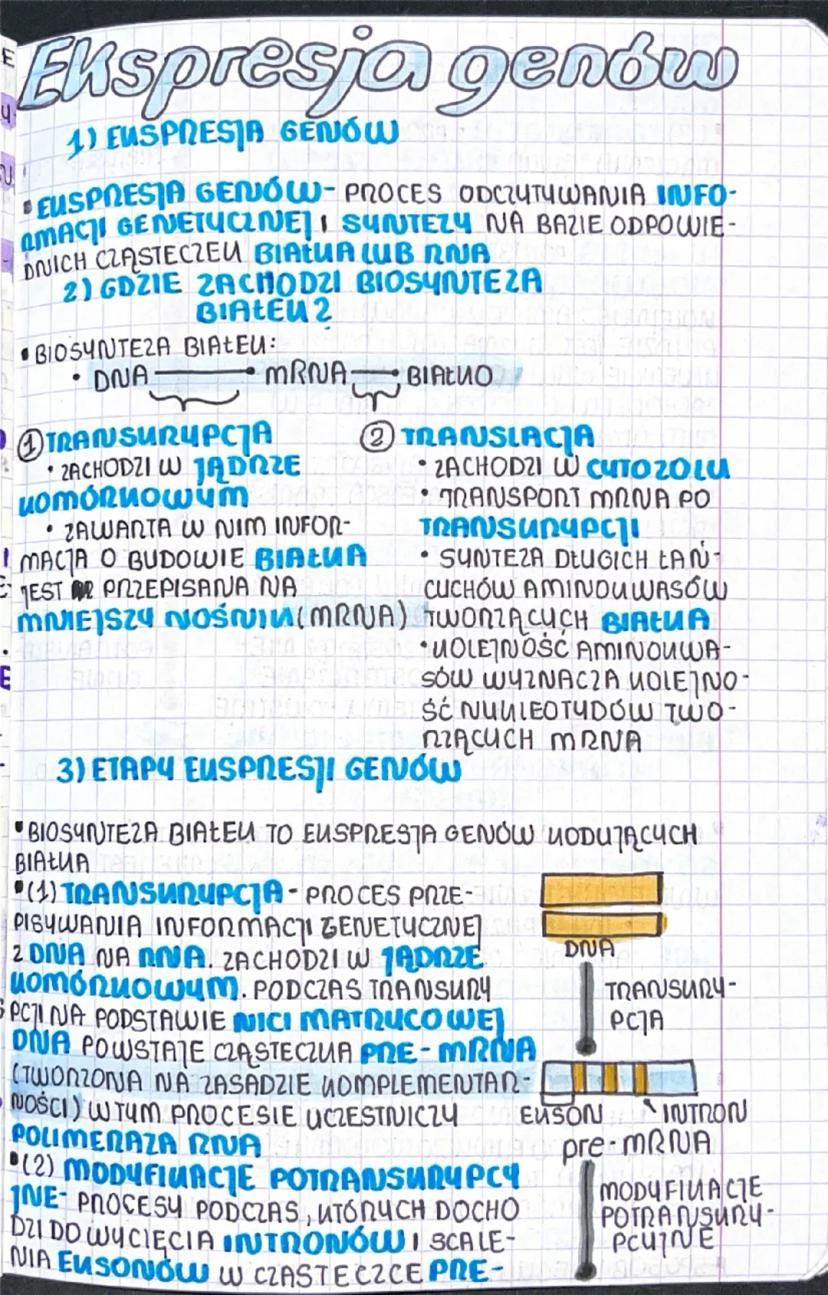 Ekspresja genów
1) EKSPRESJA GENÓW
▪EKSPRESJA GENÓW- PROCES ODCZYTYWANIA INFO-
RMACJI GENETYCZNEJ I SYNTEZY NA BAZIE ODPOWIE-
DNICH CZĄSTECZEK BIAŁKA LUB RNA
2) GDZIE ZACHODZI BIOSYNTEZA
BIAŁEK?
▪BIOSYNTEZA BIAŁEK:
• DNA mRNA BIAŁKO
① TRANSKRYPCJA
• ZACHODZI W JĄDRZE
KOMÓRKOWYM
• ZAWARTA W NIM INFOR-
MACJA O BUDOWIE BIAŁKA
JEST PRZEPISANA NA
MNIEJSZY NOŚNIK (MRNA)
② TRANSLACJA
• ZACHODZI W CYTOZOLU
• TRANSPORT MRNA PO
TRANSKRYPCJI
• SYNTEZA DŁUGICH ŁAŃ-
CUCHÓW AMINOKWASÓW
TWORZĄCYCH BIAŁKA
•KOLEJNOŚĆ AMINOKWA-
SÓW WYZNACZA KOLEJNO-
ŚĆ NUKLEOTYDÓW TWO-
RZĄCYCH MRNA
3) ETAPY EKSPRESJI GENÓW
▪BIOSYNTEZA BIAŁEK TO EKSPRESJA GENÓW KODUJĄCYCH
BIAŁKA
▪(1) TRANSKRYPCJA - PROCES PRZE-
PISYWANIA INFORMACJI GENETYCZNEJ
Z DNA NA RNA. ZACHODZI W JĄDRZE
KOMÓRKOWYM. PODCZAS TRANSKRY
PCJI NA PODSTAWIE NICI MATRYCOWEJ
DNA POWSTAJE CZĄSTECZKA PRE-MRNA
(TWORZONA NA ZASADZIE KOMPLEMENTAR-
NOŚCI) W TYM PROCESIE UCZESTNICZY
POLIMERAZA RNA
▪(2) MODYFIKACJE POTRANSKRYPCY
JNE- PROCESY PODCZAS, KTÓRYCH DOCHO
DZI DO WYCIĘCIA INTRONÓW I SCALE-
NIA EKSONÓW W CZĄSTECZCE PRE-
DNA
TRANSKRY-
PCJA
EKSON INTRON
pre-mRNA
MODYFIKACJE
POTRANSKRY-
PCYJNE